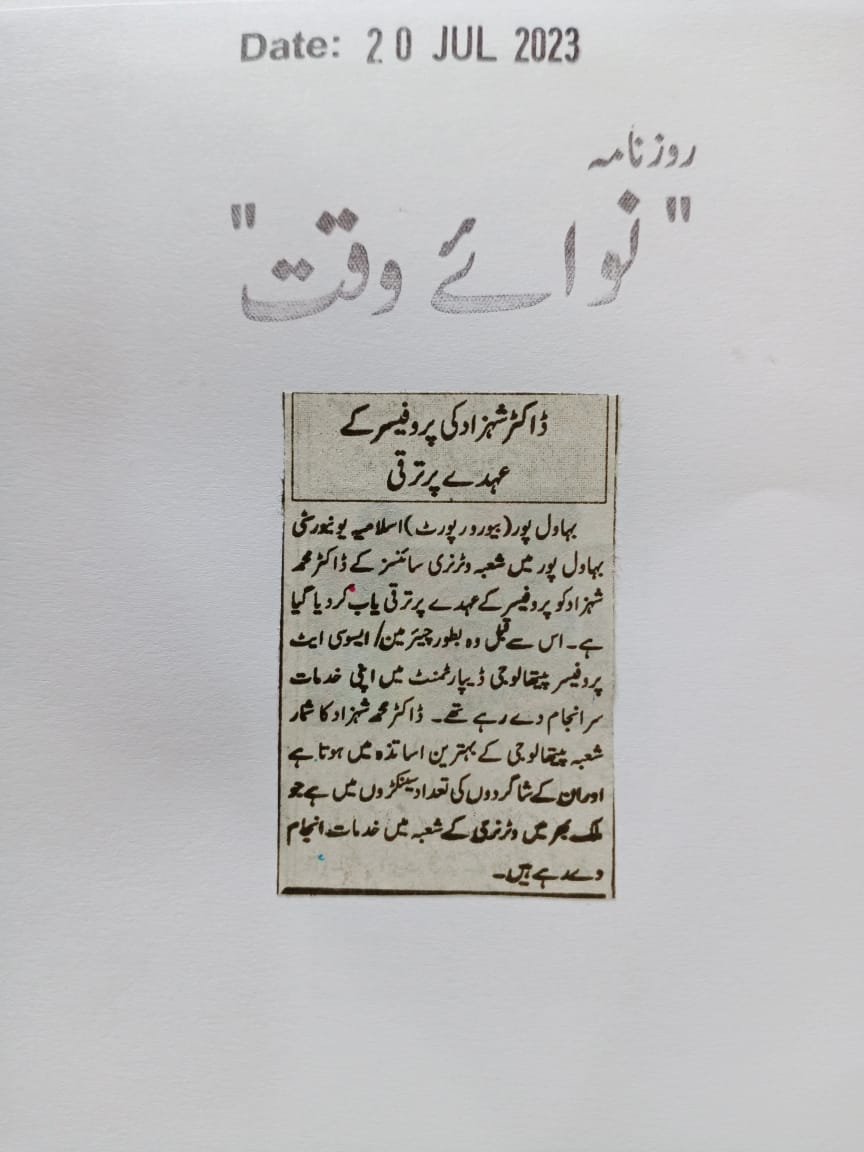 Date: 20 JUL 2023
روزنامہ
"نوائے وقت"
ڈاکٹر شہزاد کی پروفیسر کے
عہدے پر ترقی
بہاول پور (بیورو رپورٹ) اسلامیہ یونیورسٹی
بہاول پور میں شعبہ وٹرنری سائنسز کے ڈاکٹر محمد
شہزاد کو پروفیسر کے عہدے پر ترقی یاب کر دیا گیا
ہے۔ اس سے قبل وہ بطور چیئرمین/ ایسوسی ایٹ
پروفیسر پیتھالوجی ڈیپارٹمنٹ میں اپنی خدمات
سر انجام دے رہے تھے۔ ڈاکٹر محمد شہزاد کا شمار
شعبہ پیتھالوجی کے بہترین اساتذہ میں ہوتا ہے
اور ان کے شاگردوں کی تعداد سینکڑوں میں ہے جو
ملک بھر میں وٹرنری کے شعبہ میں خدمات انجام
دے رہے ہیں۔